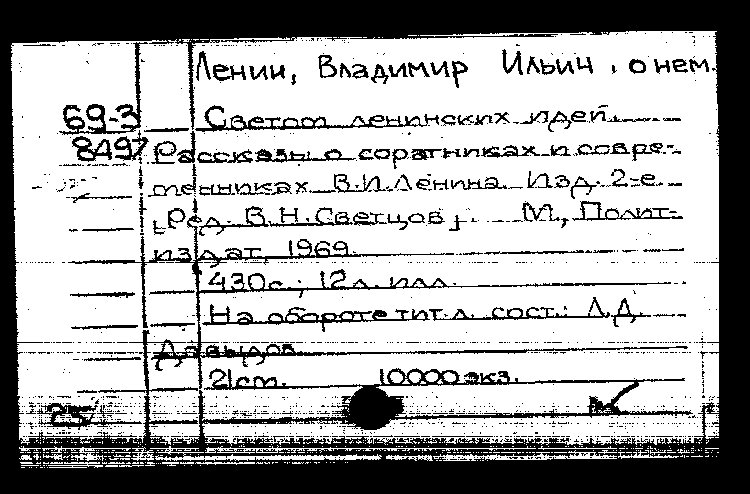 Ленин, Владимир Ильич, о нем.
69-3
Светом ленинских идей.
8497
Рассказы о соратниках и совре-
менниках В.И.Ленина. Изд. 2-е.
[Ред. В.Н.Светцов]. М., Полит-
издат, 1969.
430с.; 12л. илл.
На обороте тит.л. сост.: Л.Д.
Давыдов.
21cm. 10000 экз.
25